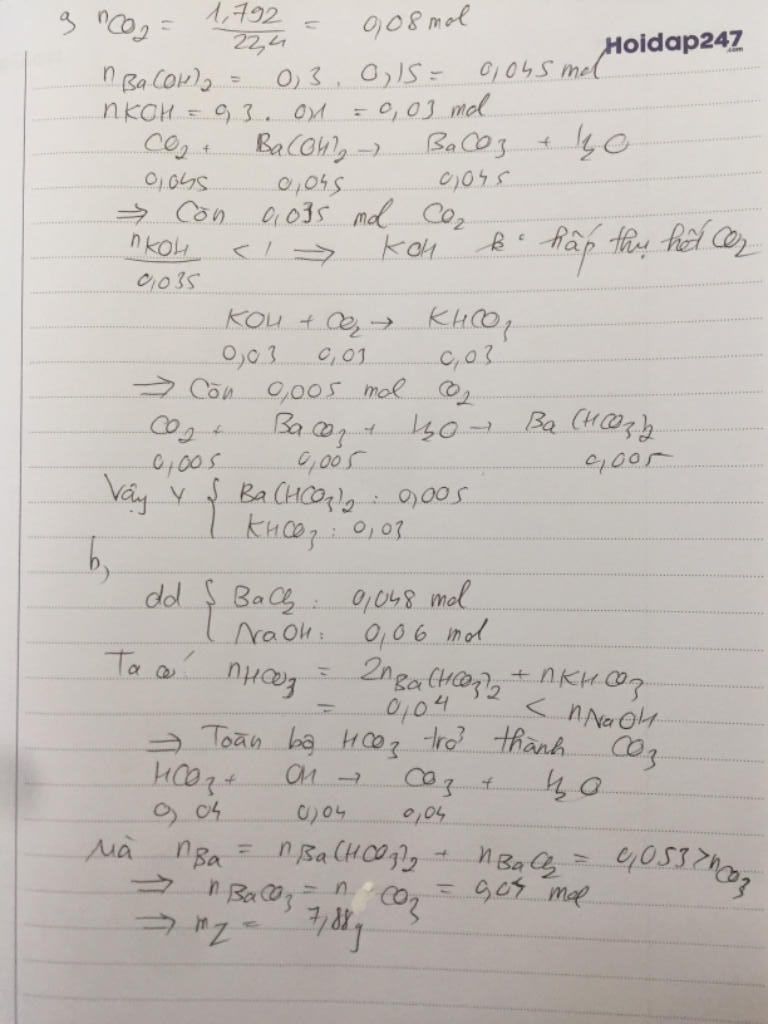 a, nCO2 = 1,792 / 22,4 = 0,08 mol
Hoidap247
.com
nBa(OH)2 = 0,3 . 0,15 = 0,045 mol
nKOH = 0,3 . 0,1 = 0,03 mol
CO2 + Ba(OH)2 → BaCO3 + H2O
0,045 0,045 0,045
⇒ Còn 0,035 mol CO2
nKOH / 0,035 < 1 ⇒ KOH k° hấp thụ hết CO2
KOH + CO2 → KHCO3
0,03 0,03 0,03
⇒ Còn 0,005 mol CO2
CO2 + BaCO3 + H2O → Ba(HCO3)2
0,005 0,005 0,005
Vậy Y { Ba(HCO3)2 : 0,005
KHCO3 : 0,03
b,
dd { BaCl2 : 0,048 mol
NaOH : 0,06 mol
Ta có nHCO3 = 2nBa(HCO3)2 + nKHCO3
= 0,04 < nNaOH
⇒ Toàn bộ HCO3 trở thành CO3
HCO3 + OH → CO3 + H2O
0,04 0,04 0,04
Mà nBa = nBa(HCO3)2 + nBaCl2 = 0,053 > nCO3
⇒ nBaCO3 = nCO3 = 0,04 mol
⇒ mZ = 7,88g